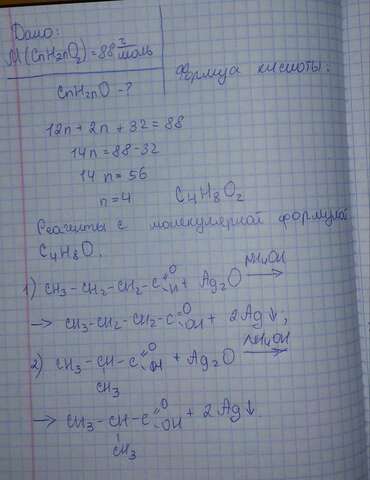 Дано:
M(CnH2nO2)=88 г/моль
Формула кислоты:
CnH2nO-?
12n+2n+32=88
14n=88-32
14n=56
n=4 C4H8O2
Реагенты с молекулярной формулой
C4H8O.
1) CH3-CH2-CH2-C=O H + Ag2O NH4OH →
→ CH3-CH2-CH2-C=O OH + 2Ag↓;
2) CH3-CH-C=O OH + Ag2O NH4OH →
CH3
→ CH3-CH-C=O OH + 2Ag↓.
CH3